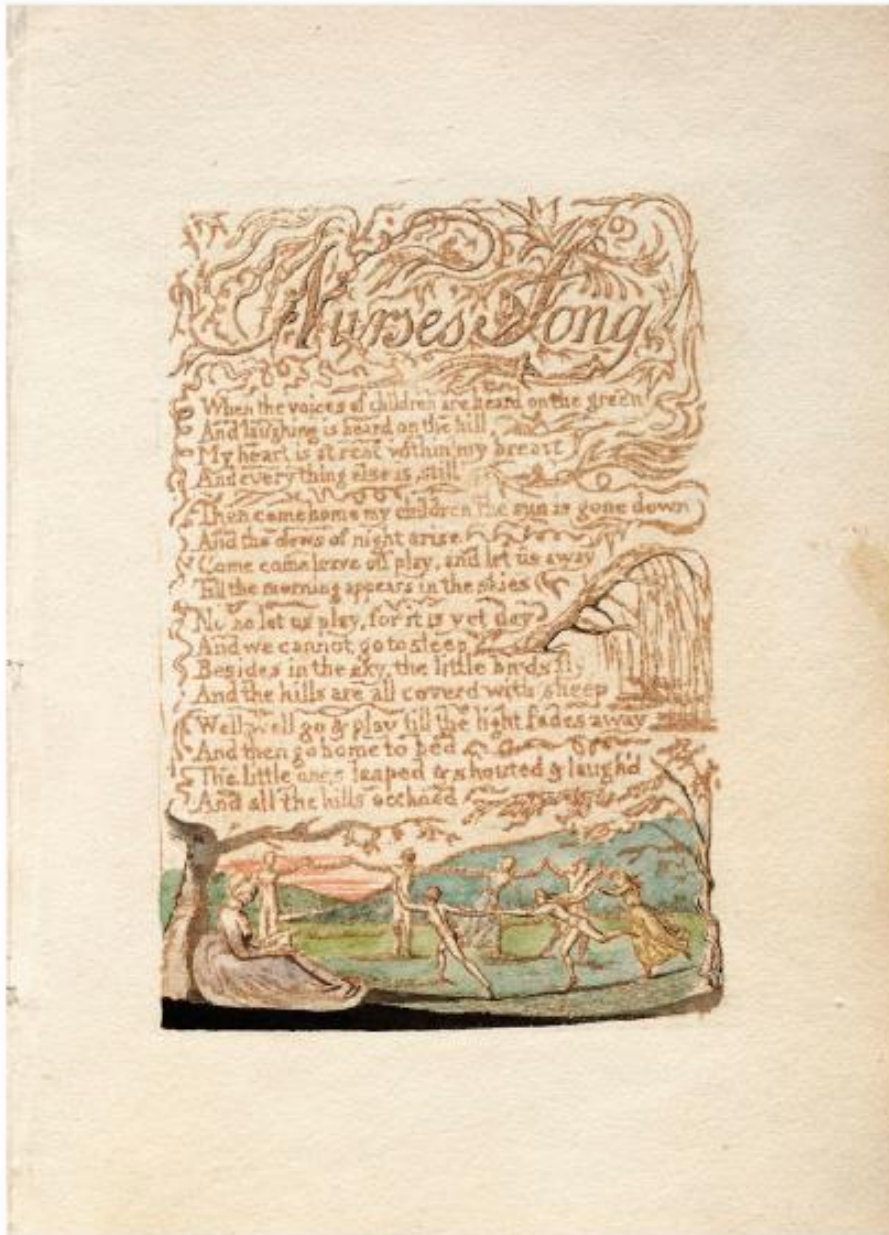 Nurses Song
When the voices of children are heard on the green
And laughing is heard on the hill,
My heart is at rest within my breast
And every thing else is still
Then come home my children the sun is gone down
And the dews of night arise
Come come leave off play, and let us away
Till the morning appears in the skies
No no let us play, for it is yet day
And we cannot go to sleep
Besides in the sky, the little birds fly
And the hills are all coverd with sheep
Well well go & play till the light fades away
And then go home to bed
The little ones leaped & shouted & laugh'd
And all the hills ecchoed